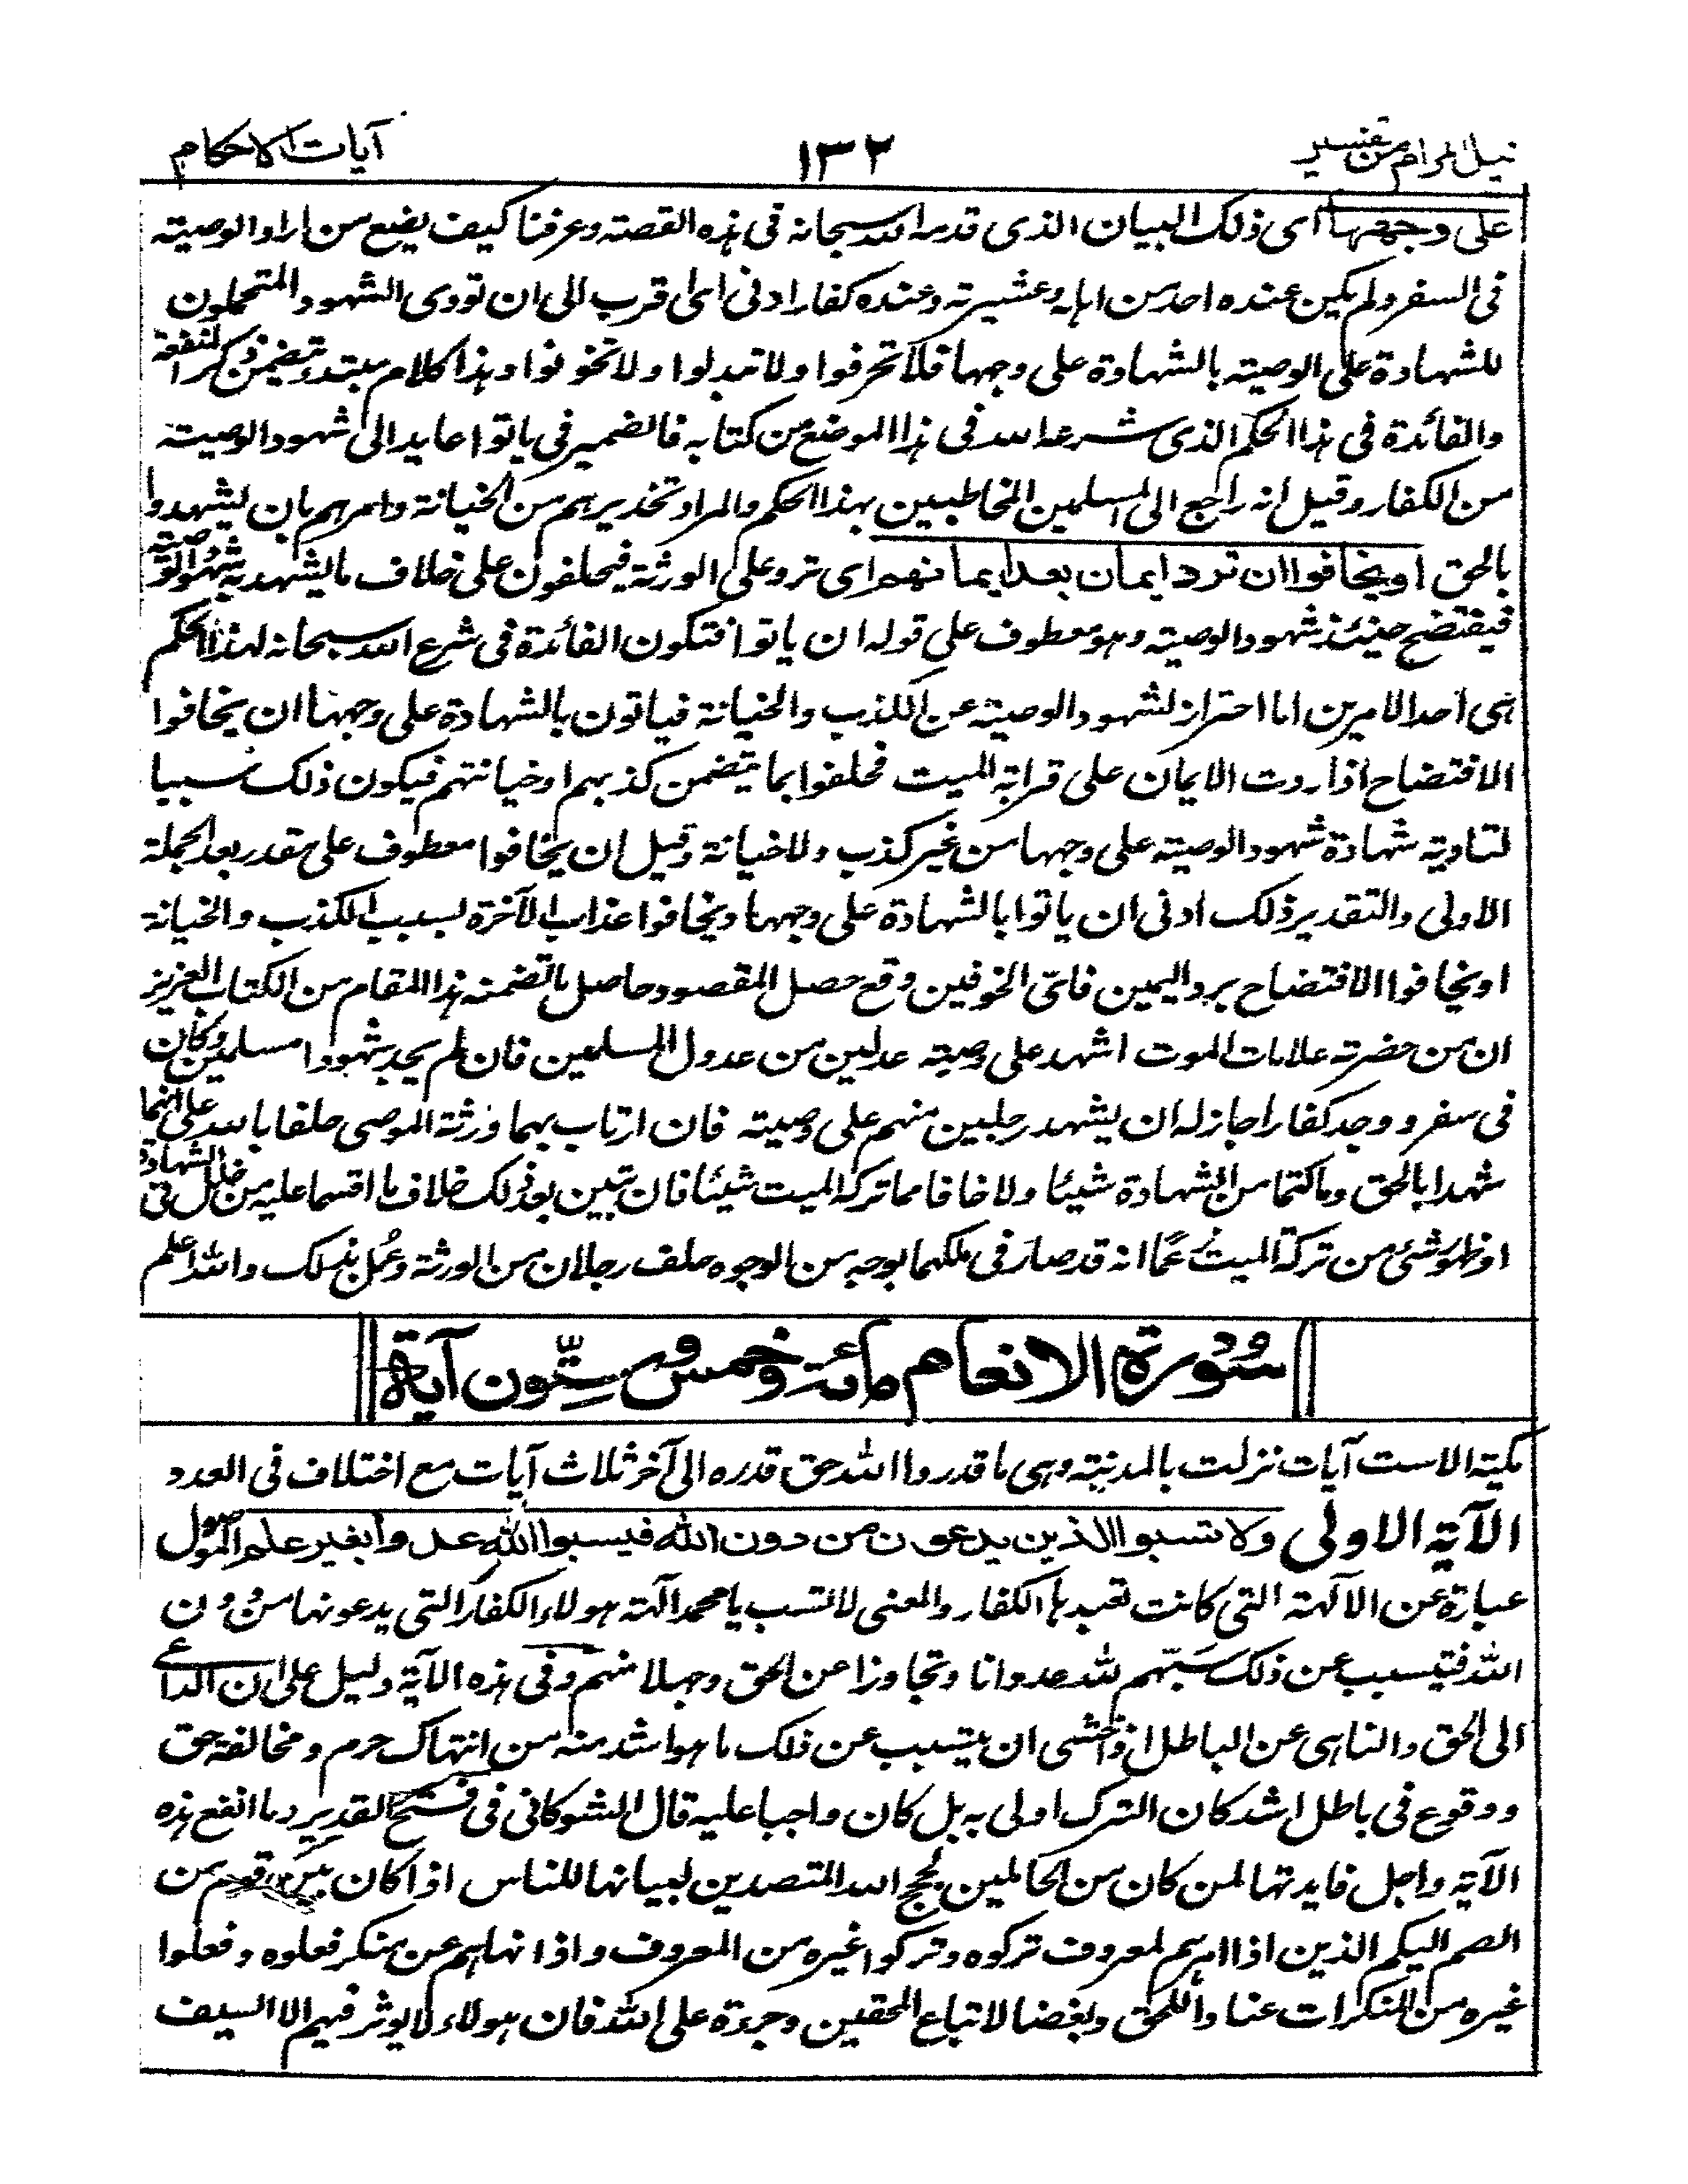 نيل المرام من تفسير
١٣٢
آيات الاحكام
على وجهها اى ذلك البيان الذى قدمه الله سبحانه فى هذه القصة وعرفنا كيف يضع من اراد الوصية
فى السفر ولم يكن عنده احد من اهله وعشيرته وعنده كفار ادنى اى اقرب الى ان تودى الشهود المتحملون
للشهادة على الوصية بالشهادة على وجهها فلا تحرفوا ولا تبدلوا ولا تخونوا وهذا كلام مبتدء تتضمن ذكر المنفعة
والفائدة فى هذا الحكم الذى شرعه الله فى هذا الموضع من كتابه فالضمير فى ياتوا عايد الى شهود الوصية
من الكفار وقيل انه راجع الى المسلمين المخاطبين بهذا الحكم والمراد تحذيرهم من الخيانة وامرهم بان يشهدوا
بالحق او يخافوا ان ترد ايمان بعد ايمانهم اى ترد على الورثة فيحلفون على خلاف ما يشهد به شهود الوصية
فيفتضح حينئذ شهود الوصية وهو معطوف على قوله ان ياتوا فتكون الفائدة فى شرع الله سبحانه لهذا الحكم
هى احد الامرين اما احتراز لشهود الوصية عن الكذب والخيانة فياتون بالشهادة على وجهها ان يخافوا
الافتضاح اذا ردت الايمان على قرابة الميت فحلفوا بما يتضمن كذبهم او خيانتهم فيكون ذلك سببا
لتادية شهادة شهود الوصية على وجهها من غير كذب ولا خيانة وقيل ان يخافوا معطوف على مقدر بعد الجملة
الاولى والتقدير ذلك ادنى ان ياتوا بالشهادة على وجهها ويخافوا عذاب الآخرة بسبب الكذب والخيانة
او يخافوا الافتضاح برد اليمين فاىّ الخوفين وقع حصل المقصود حاصل ما تضمنه هذا المقام من الكتاب العزيز
ان من حضرته علامات الموت اشهد على وصيته عدلين من عدول المسلمين فان لم يجد شهودا مسلمين وكان
فى سفر ووجد كفارا جاز له ان يشهد رجلين منهم على وصيته فان ارتاب بهما ورثة الموصى حلفا بالله على انهما
شهدا بالحق وما كتما من الشهادة شيئا ولا خانا مما تركه الميت شيئا فان تبين بعد ذلك خلاف ما اقسما عليه من خلل فى الشهادة
او ظهور شئ من تركة الميت عما انه قد صار فى ملكهما بوجه من الوجوه حلف رجلان من الورثة وعمل بذلك والله اعلم
سُورة الانعام مائة وخمس وستّون آية
مكية الا ست آيات نزلت بالمدينة وهى ما قدروا الله حق قدره الى آخر ثلاث آيات مع اختلاف فى العدد
الآية الاولى ولا تسبوا الذين يدعون من دون الله فيسبوا الله عدوا بغير علم الموصول
عبارة عن الآلهة التى كانت تعبدها الكفار والمعنى لا تسب يا محمد آلهة هولاء الكفار التى يدعونها من دون
الله فيتسبب عن ذلك سبّهم لله عدوانا وتجاوزا عن الحق وجهلا منهم وفى هذه الآية دليل على ان الداعى
الى الحق والناهى عن الباطل اذا خشى ان يتسبب عن ذلك ما هو اشد منه من انتهاك حرم ومخالفة حق
ووقوع فى باطل اشد كان الترك اولى به بل كان واجبا عليه قال الشوكانى فى فتح القدير وما انفع هذه
الآية واجل فايدتها لمن كان من الحاملين لحجج الله المتصدين لبيانها للناس اذا كان بين قوم من
الصم البكم الذين اذا امرهم بمعروف تركوه وتركوا غيره من المعروف واذا نهاهم عن منكر فعلوه وفعلوا
غيره من المنكرات عنادا للحق وبغضا لاتباع المحقين وجرءة على الله فان هولاء لا يوثر فيهم الا السيف